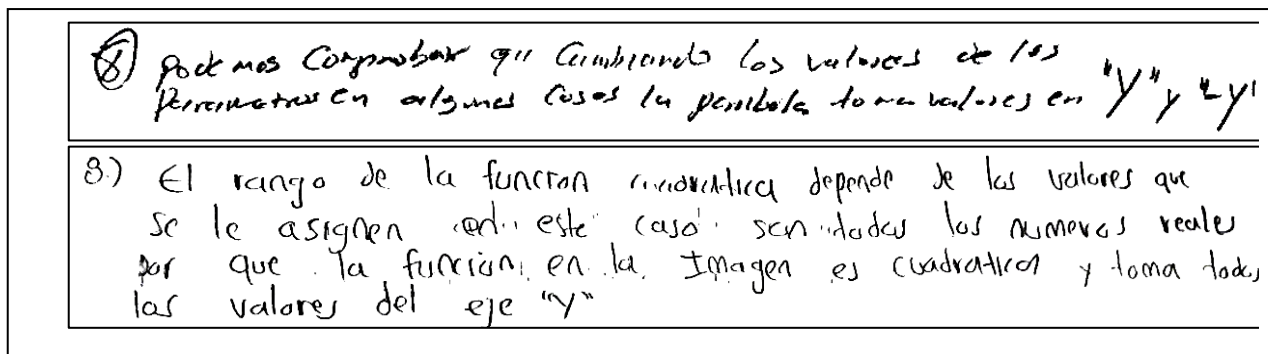 8) podemos Comprobar que Cambiando los valores de los
Parametros en algunos Casos la parabola toma valores en "y" y "-y"
8.) El rango de la funcion cuadratica depende de los valores que
se le asignen en este caso son todos los numeros reales
por que la funcion en la Imagen es cuadratica y toma todos
los valores del eje "y"